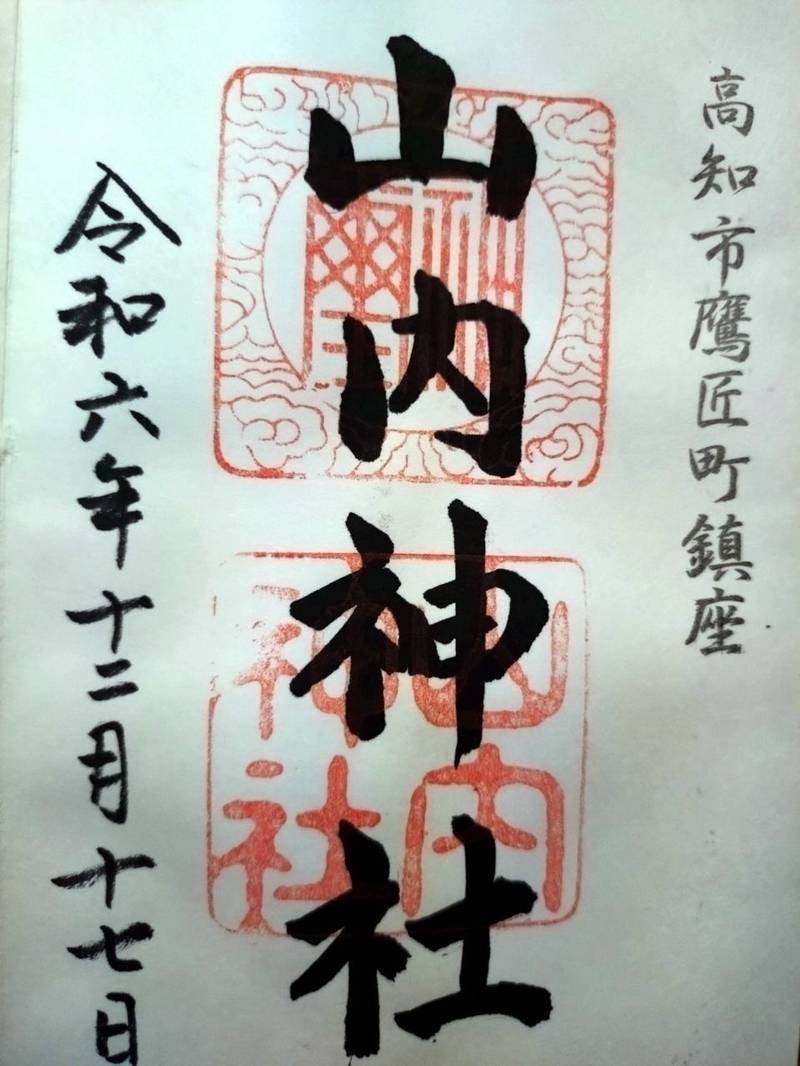 高知市鷹匠町鎮座
山内神社
山内
神社
令和六年十二月十七日